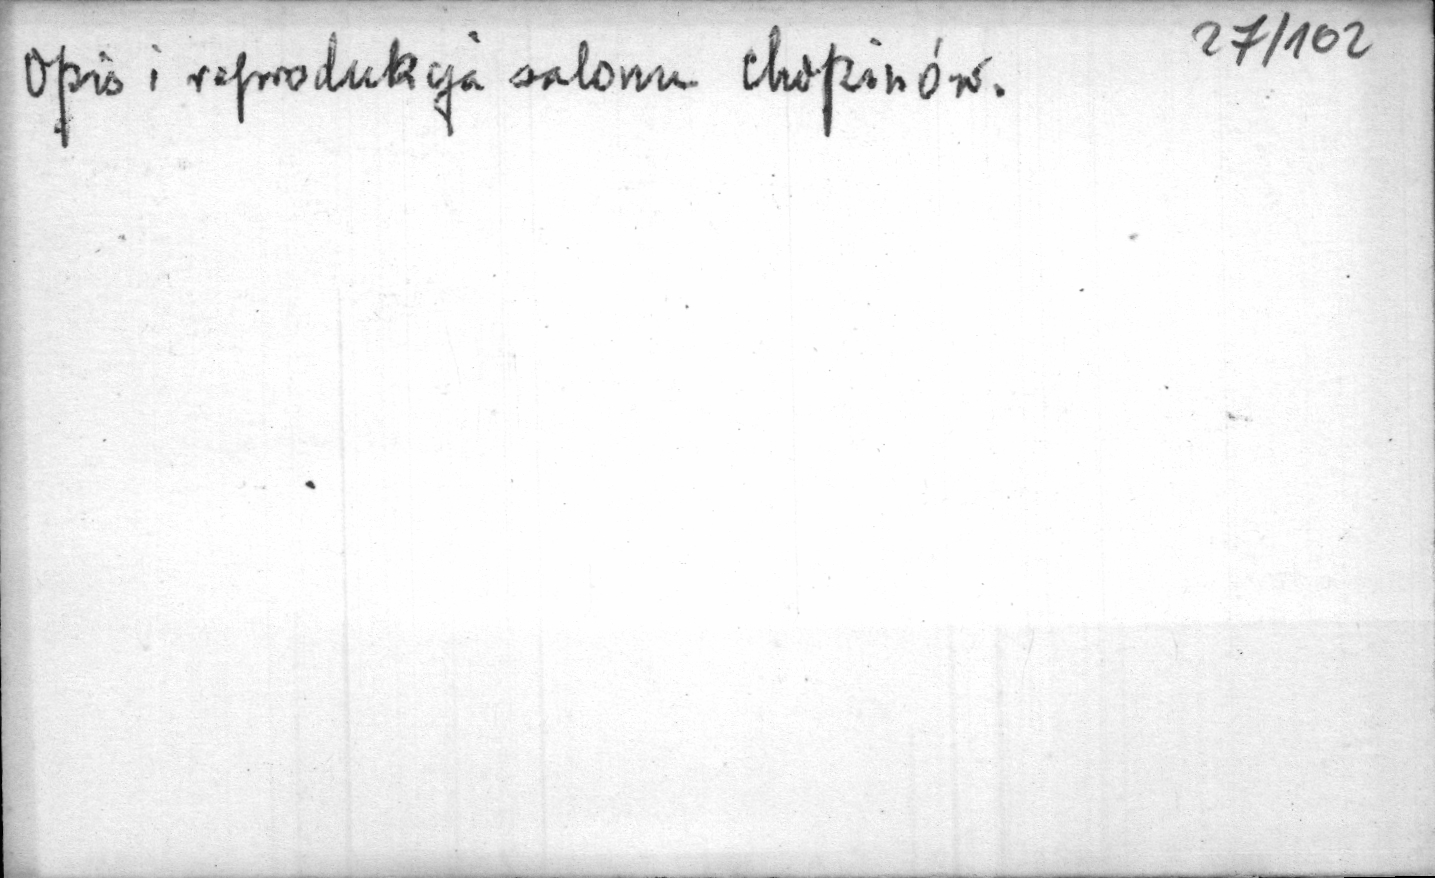 27/102
Opis i reprodukcja salonu Chopinów.